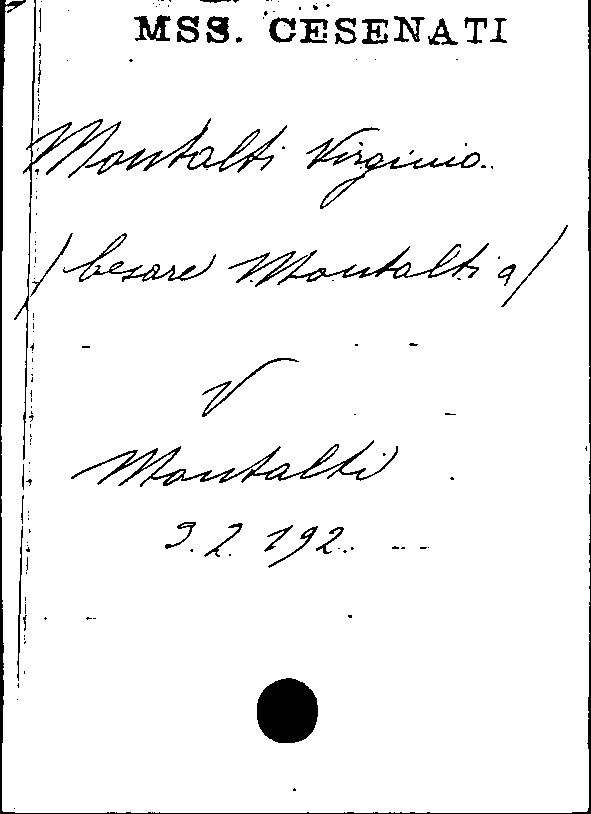 MSS. CESENATI
Montalti Virginio.
/ Cesare Montalti a /
V
Montalti
3.2.192.